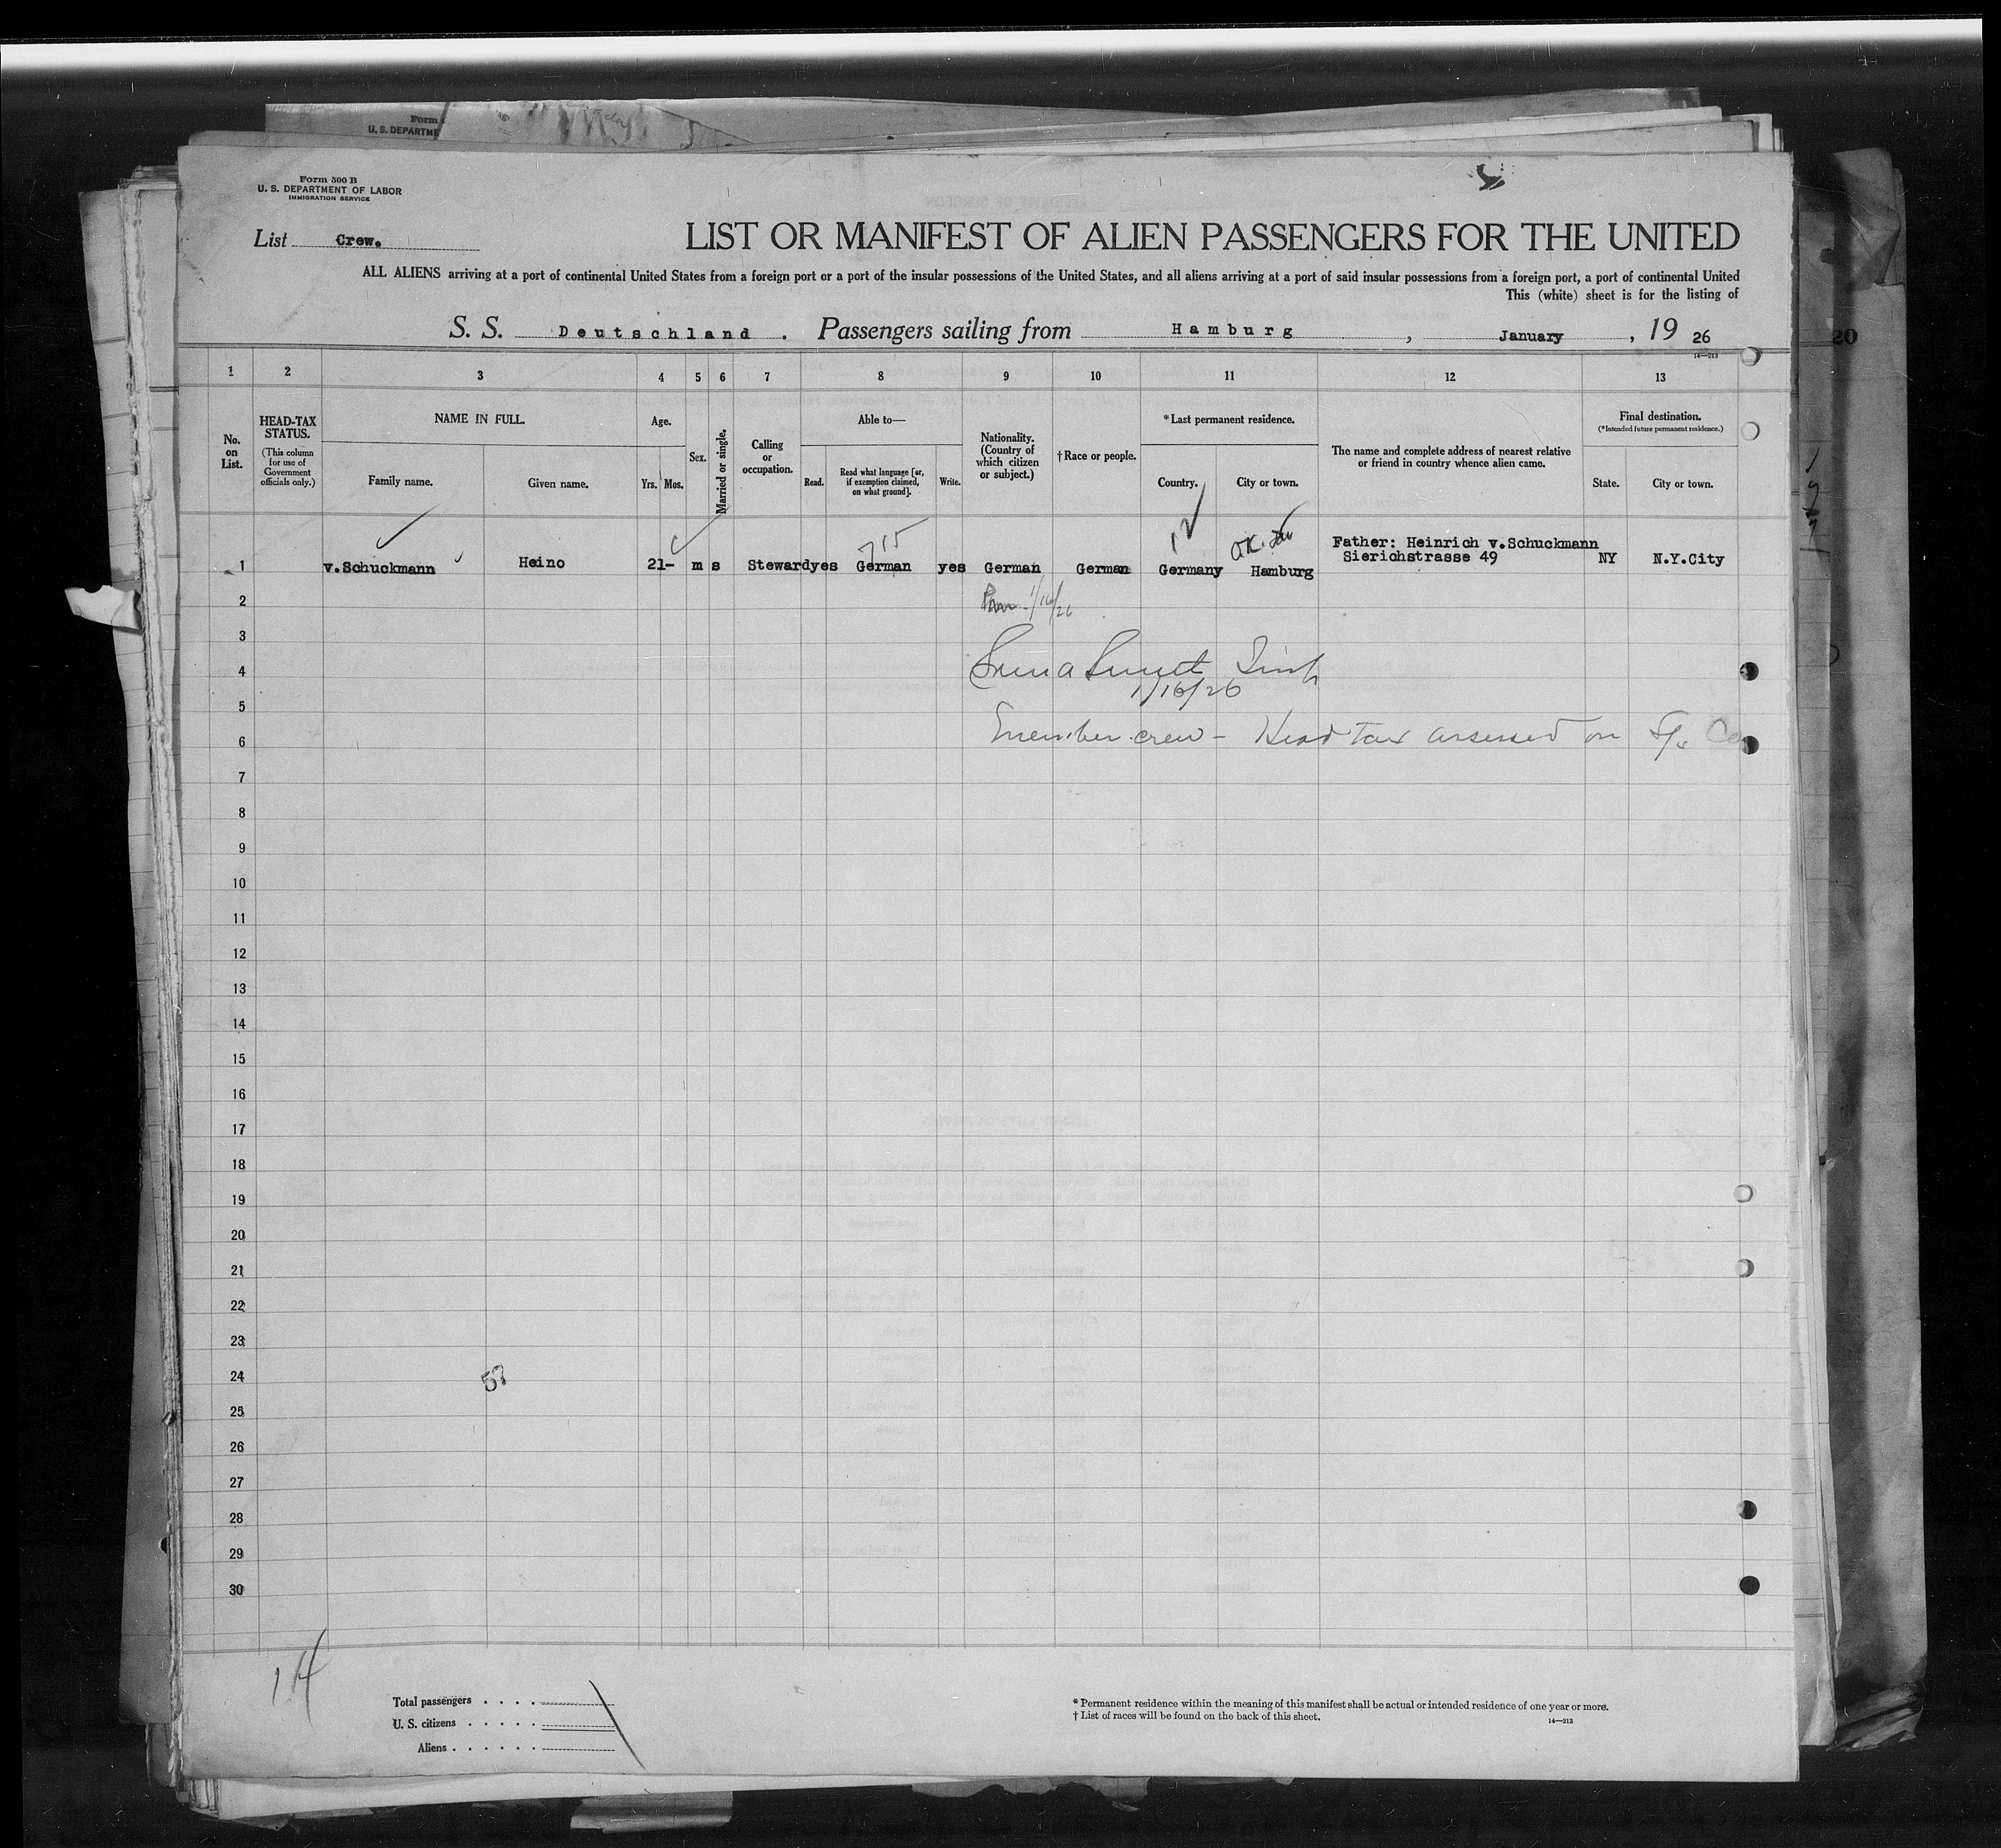 Form
U. S. DEPARTME
Form 500 B
U. S. DEPARTMENT OF LABOR
IMMIGRATION SERVICE
List Crew.
LIST OR MANIFEST OF ALIEN PASSENGERS FOR THE UNITED
ALL ALIENS arriving at a port of continental United States from a foreign port or a port of the insular possessions of the United States, and all aliens arriving at a port of said insular possessions from a foreign port, a port of continental United
This (white) sheet is for the listing of
S. S. Deutschland . Passengers sailing from Hamburg , January , 19 26
14—213
20
1 2 3 4 5 6 7 8 9 10 11 12 13
No. on List.
HEAD-TAX STATUS.
(This column for use of Government officials only.)
NAME IN FULL.
Family name. Given name.
Age.
Yrs. Mos.
Sex.
Married or single.
Calling or occupation.
Able to—
Read. Read what language [or, if exemption claimed, on what ground]. Write.
Nationality. (Country of which citizen or subject.)
† Race or people.
* Last permanent residence.
Country. City or town.
The name and complete address of nearest relative or friend in country whence alien came.
Final destination.
(*Intended future permanent residence.)
State. City or town.
715 12 O.K.
Father: Heinrich v.Schuckmann
Sierichstrasse 49
1 v.Schuckmann Heino 21- m s Steward yes German yes German German Germany Hamburg NY N.Y.City
2
1/16/26
3
4
1/16/26
5
6
member crew - Head Tax assessed on
7
8
9
10
11
12
13
14
15
16
17
18
19
20
21
22
23
24
57
25
26
27
28
29
30
14
Total passengers . . . .
U. S. citizens . . . . .
Aliens . . . . . .
* Permanent residence within the meaning of this manifest shall be actual or intended residence of one year or more.
† List of races will be found on the back of this sheet.
14—213